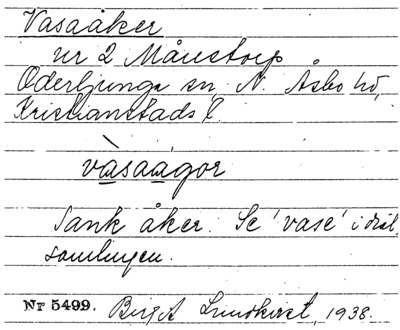 Vasaåker
nr 2 Månstorp
Oderljunga sn, N. Åsbo hd,
Kristianstads l.
vàsaágor
Sank åker. Se 'vase' i dial.
samlingen.
Nr 5499. Birgit Lundkvist, 1938.